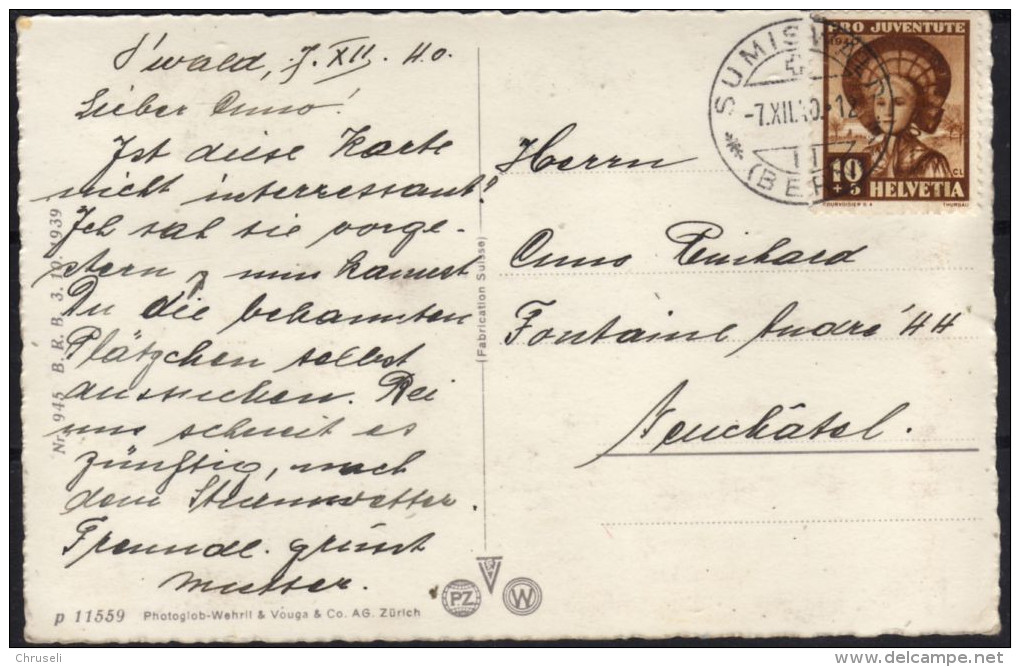 S'wald, 7. XII. 40.
Lieber Onno!
Ist diese Karte
nicht interressant!
Ich sah sie vorge-
stern, nun kannst
Du die bekannten
Plätzchen selbst
aussuchen. Bei
uns schneit es
zünftig, nach
dem Sturmwetter.
Freundl. grüsst
Mutter.
Herrn
Onno Reinhard
Fontaine André 44
Neuchâtel.
SUMISWALD
-7.XII.40.-12
(BERN)
PRO JUVENTUTE
1940
10
+5
HELVETIA
CL
COURVOISIER S A
THURGAU
Nr. 945 B. R. B. 3. 10. 1939
(Fabrication Suisse)
p 11559 Photoglob-Wehrli & Vouga & Co. AG. Zürich
PZ
V
W
© Chruseli
delcampe.net